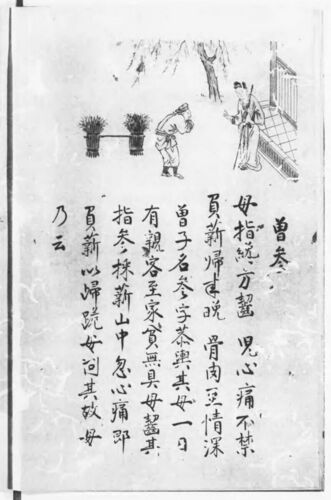 曾參
母指方齧 児心痛不禁
負薪歸来晚 骨肉至情深
曾子名參字恭輿其母一日
有親客至家貧無具母齧其
指參採薪山中忽心痛即
負薪以歸跪母问其故母
乃云